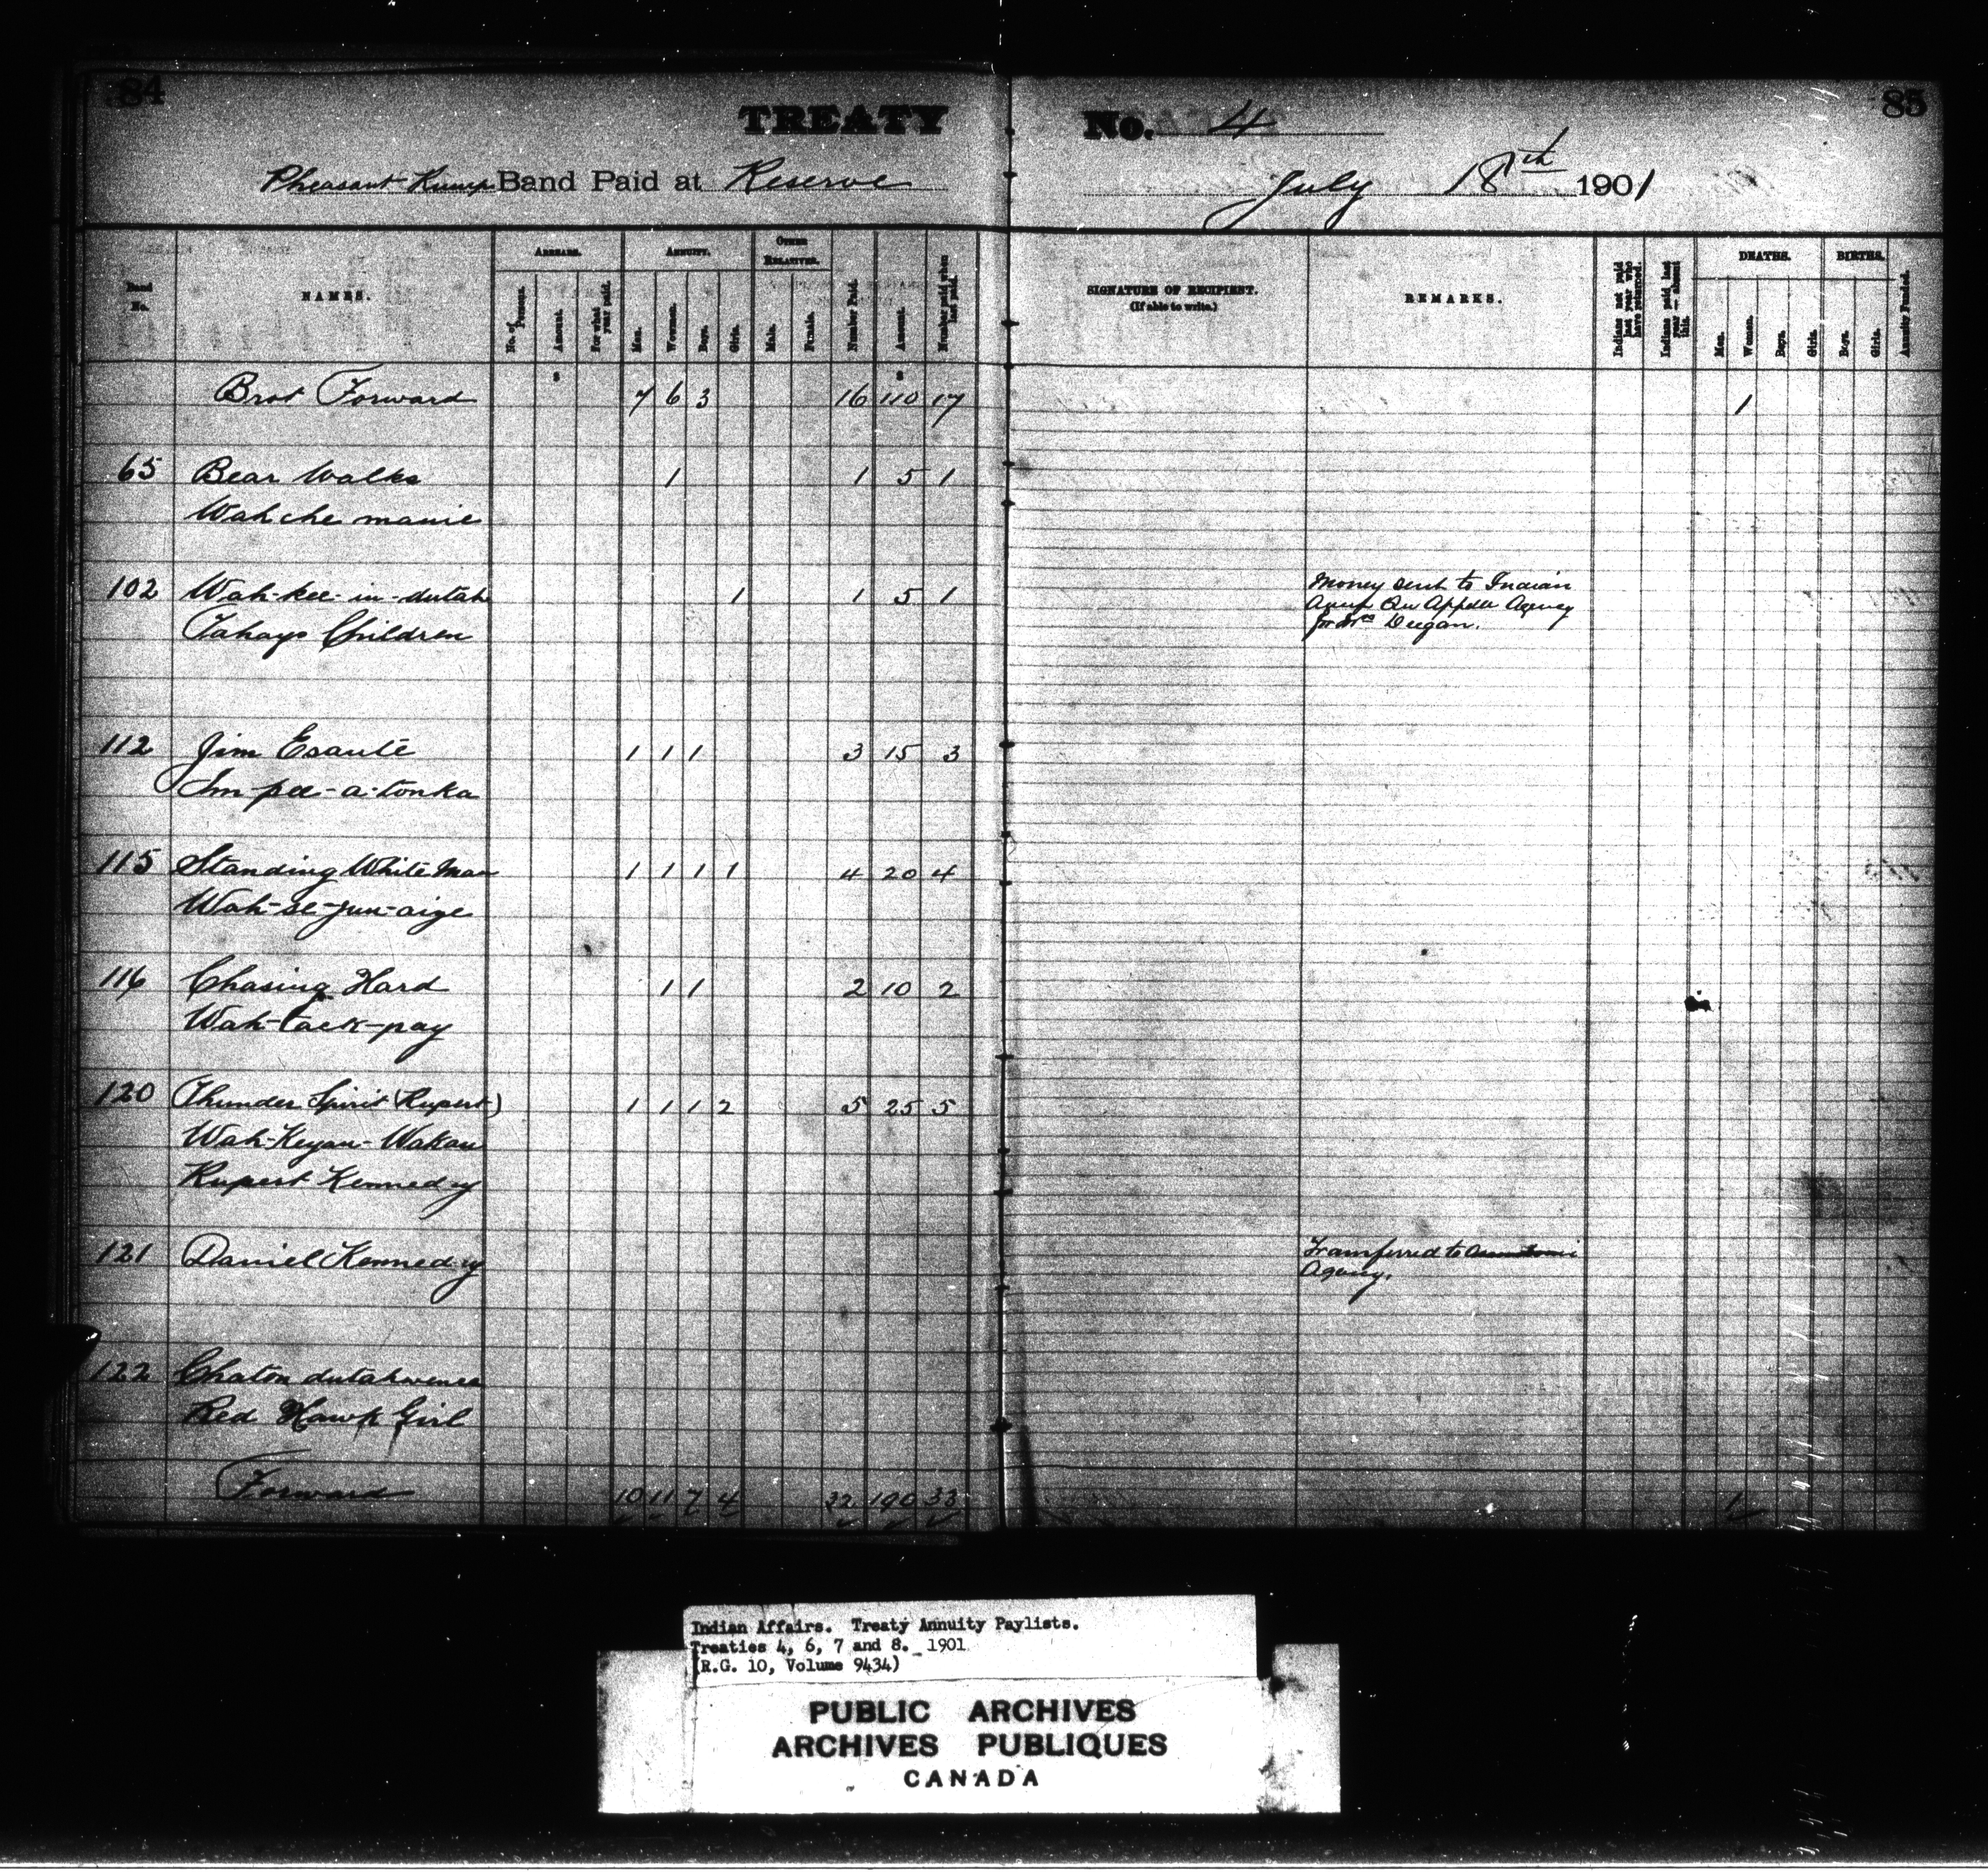 84
TREATY No. 4
85
Pheasant Rump Band Paid at Reserve July 18th 1901
Band No.
NAMES.
ARREARS.
No. of Persons.
Amount.
For what year paid.
ANNUITY.
Men.
Women.
Boys.
Girls.
OTHER RELATIVES.
Male.
Female.
Number Paid.
Amount.
Number paid when last paid.
SIGNATURE OF RECIPIENT.
(If able to write.)
REMARKS.
Indians not paid last year who have returned.
Indians paid last year — absent this.
DEATHS.
Men.
Women.
Boys.
Girls.
BIRTHS.
Boys.
Girls.
Annuity Funded.
$ $
Brot Forward 7 6 3 16 110 17 1
65 Bear Walks 1 1 5 1
Wah che manie
102 Wah-kee-in-dutah 1 1 5 1 Money sent to Indian
Tahays Children Qu Appelle Agency
for Mrs Deegan.
112 Jim Esauté 1 1 1 3 15 3
Im-pee-a-tonka
115 Standing White Man 1 1 1 1 4 20 4
Wah-se-jun-aige
116 Chasing Hard 1 1 2 10 2
Wah-tack-pay
120 Thunder Spirit (Rupert) 1 1 1 2 5 25 5
Wah-Keyan-Wakan
Rupert Kennedy
121 Daniel Kennedy Transferred to
Agency.
122 Chaton dutahwenca
Red Hawk Girl
Forward 10 11 7 4 32 190 33 1
Indian Affairs. Treaty Annuity Paylists.
Treaties 4, 6, 7 and 8. 1901
(R.G. 10, Volume 9434)
PUBLIC ARCHIVES
ARCHIVES PUBLIQUES
CANADA